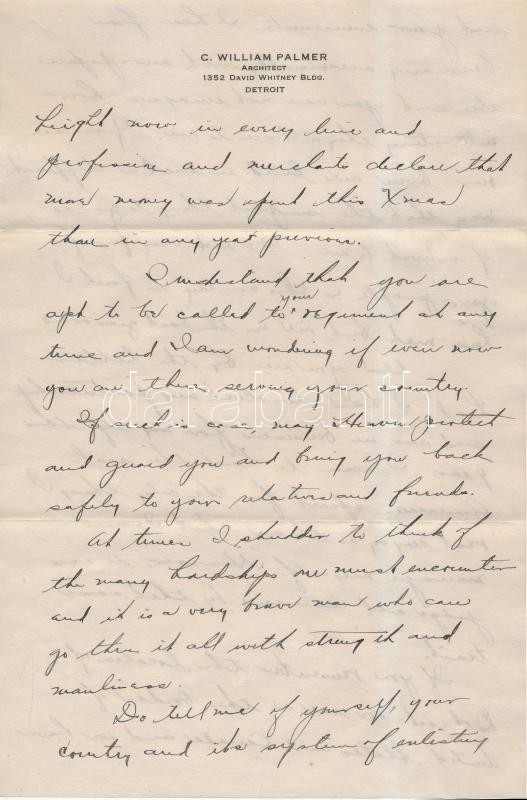 C. WILLIAM PALMER
ARCHITECT
1352 DAVID WHITNEY BLDG.
DETROIT
right now in every line and
profession and merchants declare that
more money was spent this Xmas
than in any year previous.
I understand that you are
apt to be called to your regiment at any
time and I am wondering if even now
you are there serving your country.
If such is case, may Heaven protect
and guard you and bring you back
safely to your relatives and friends.
At times I shudder to think of
the many hardships one must encounter
and it is a very brave man who can
go thru it all with strength and
manliness.
Do tell me of yourself, your
country and its system of enlisting
darabanth